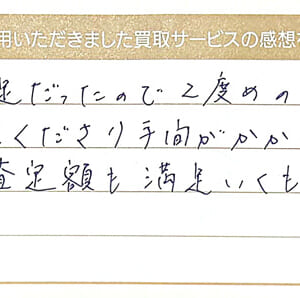 用いただきました買取サービスの感想
足だったので2度めの
くださり手間がかか
査定額も満足いくも